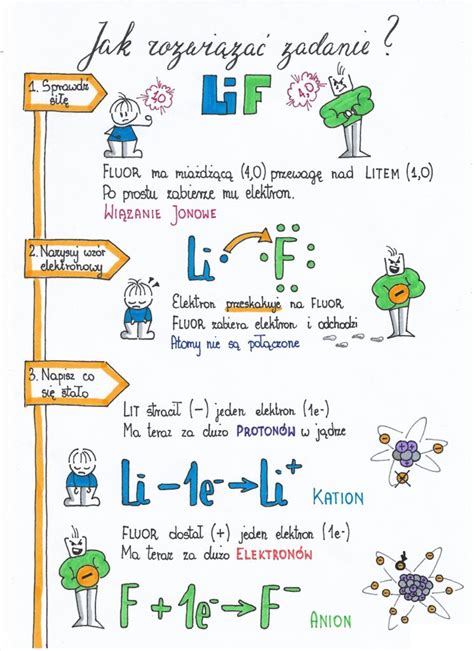 Jak rozwiązać zadanie?
1. Sprawdź
siłę
1,0
LiF
4,0
FLUOR ma miażdżącą (4,0) przewagę nad LITEM (1,0)
Po prostu zabierze mu elektron.
WIĄZANIE JONOWE
2. Narysuj wzór
elektronowy
Li F
Elektron przeskakuje na FLUOR
FLUOR zabiera elektron i odchodzi
Atomy nie są połączone
3. Napisz co
się stało
LIT stracił (-) jeden elektron (1e-)
Ma teraz za dużo PROTONÓW w jądrze
Li - 1e⁻ → Li⁺
KATION
FLUOR dostał (+) jeden elektron (1e-)
Ma teraz za dużo ELEKTRONÓW
F + 1e⁻ → F⁻
ANION